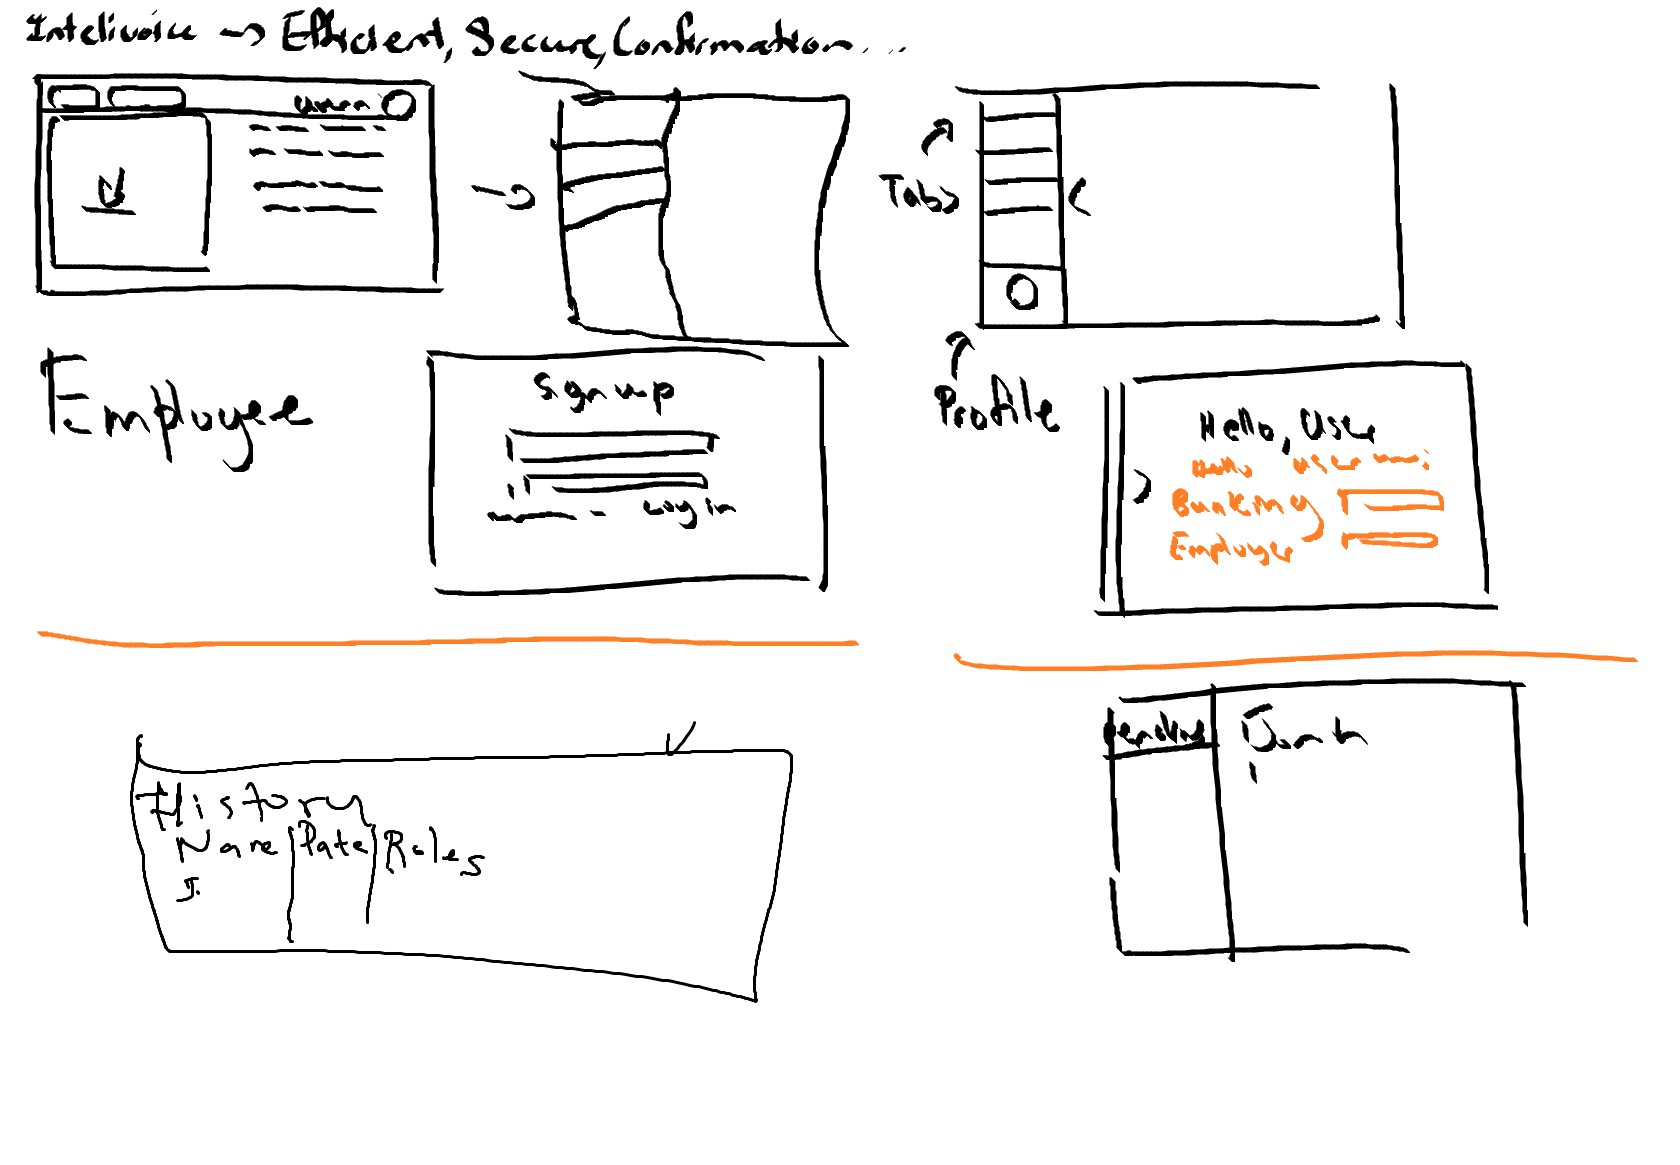 Intelivoice → Efficient, Secure, Confirmation...
Tabs
Employee
Sign up
Log in
Profile
Hello, User
Hello User
Banking
Employer
History
Name | Date | Roles
J.
Pending